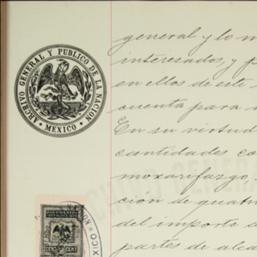 ARCHIVO GENERAL Y PUBLICO DE LA NACION
• MEXICO •
general y lo m
interesados, y f
en ellos de este
cuenta para
En su virtud
cantidades co
moxarifazgo.
cion de quatr
del importe d
partes de alca